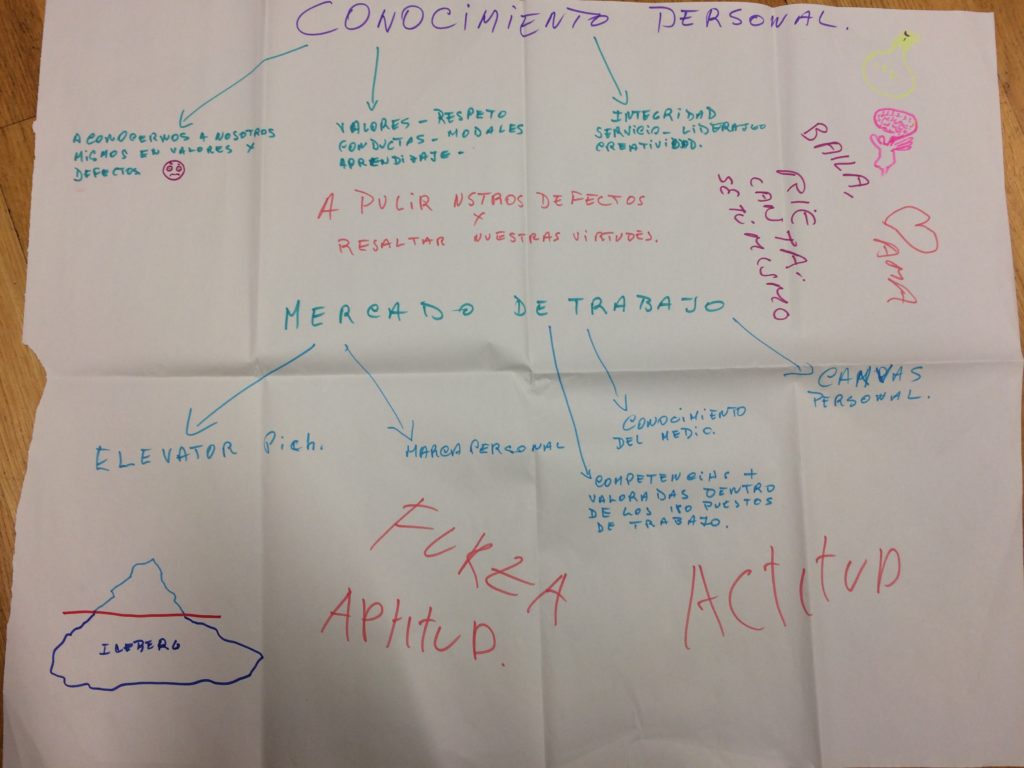 CONOCIMIENTO PERSONAL.
A CONOCERNOS A NOSOTROS
MISMOS EN VALORES Y
DEFECTOS
VALORES - RESPETO
CONDUCTAS - MODALES
APRENDIZAJE -
INTEGRIDAD
SERVICIO - LIDERAJGO
CREATIVIDAD.
A PULIR NSTROS DEFECTOS
Y
RESALTAR NUESTRAS VIRTUDES.
BAILA,
RIE
CANTA.
SE TÚ MISMO
AMA
MERCADO DE TRABAJO
ELEVATOR Pich.
MARCA PERSONAL
CONOCIMIENTO
DEL MEDIO.
COMPETENCIAS +
VALORADAS DENTRO
DE LOS 180 PUESTOS
DE TRABAJO.
CANVAS
PERSONAL.
FURZA
APtitUD.
ACtitUD
ICEBERG